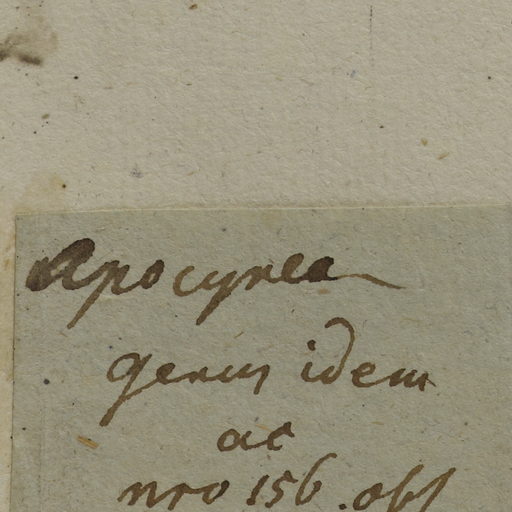 Apocynea
genus idem
ac
nro 156. obs